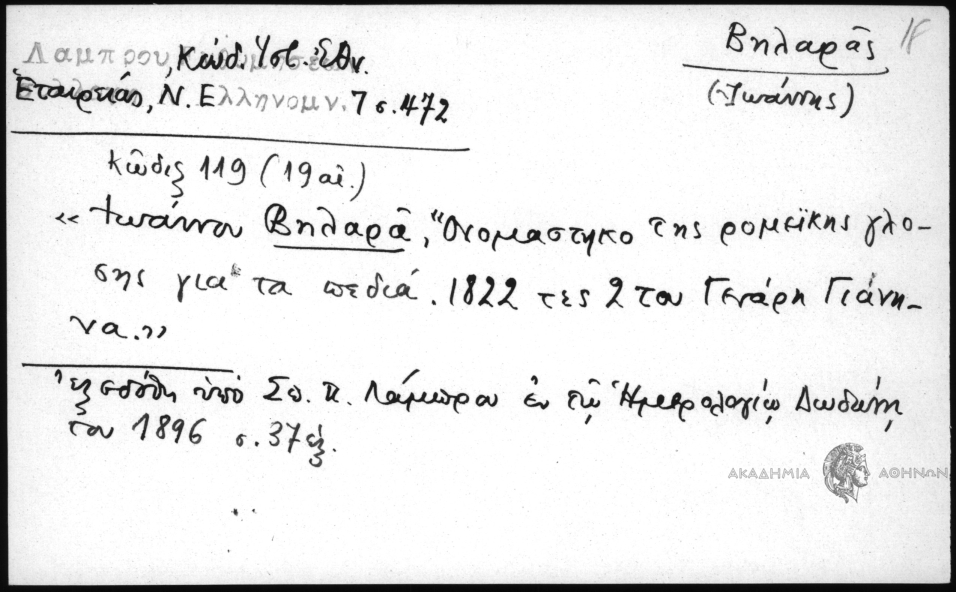 Βηλαρᾶς
(Ἰωάννης)
Λαμπρου, Κώδ. Ἱστ. Ἐθν.
Ἑταιρείας, Ν. Ελληνομν. 7 σ. 472
Κῶδιξ 119 (19 αἰ.)
« Ἰωάννου Βηλαρᾶ, "Ονομαστηκο της ρομεϊκης γλο-
σης για τα πεδιά. 1822 τες 2 του Γενάρη Γιάνη-
να.»
Ἐξεδόθη ὑπὸ Σπ. Π. Λάμπρου ἐν τῷ Ἡμερολογίῳ Δωδώνη
του 1896 σ. 37 ἑξ.
ΑΚΑΔΗΜΙΑ ΑΘΗΝΩΝ